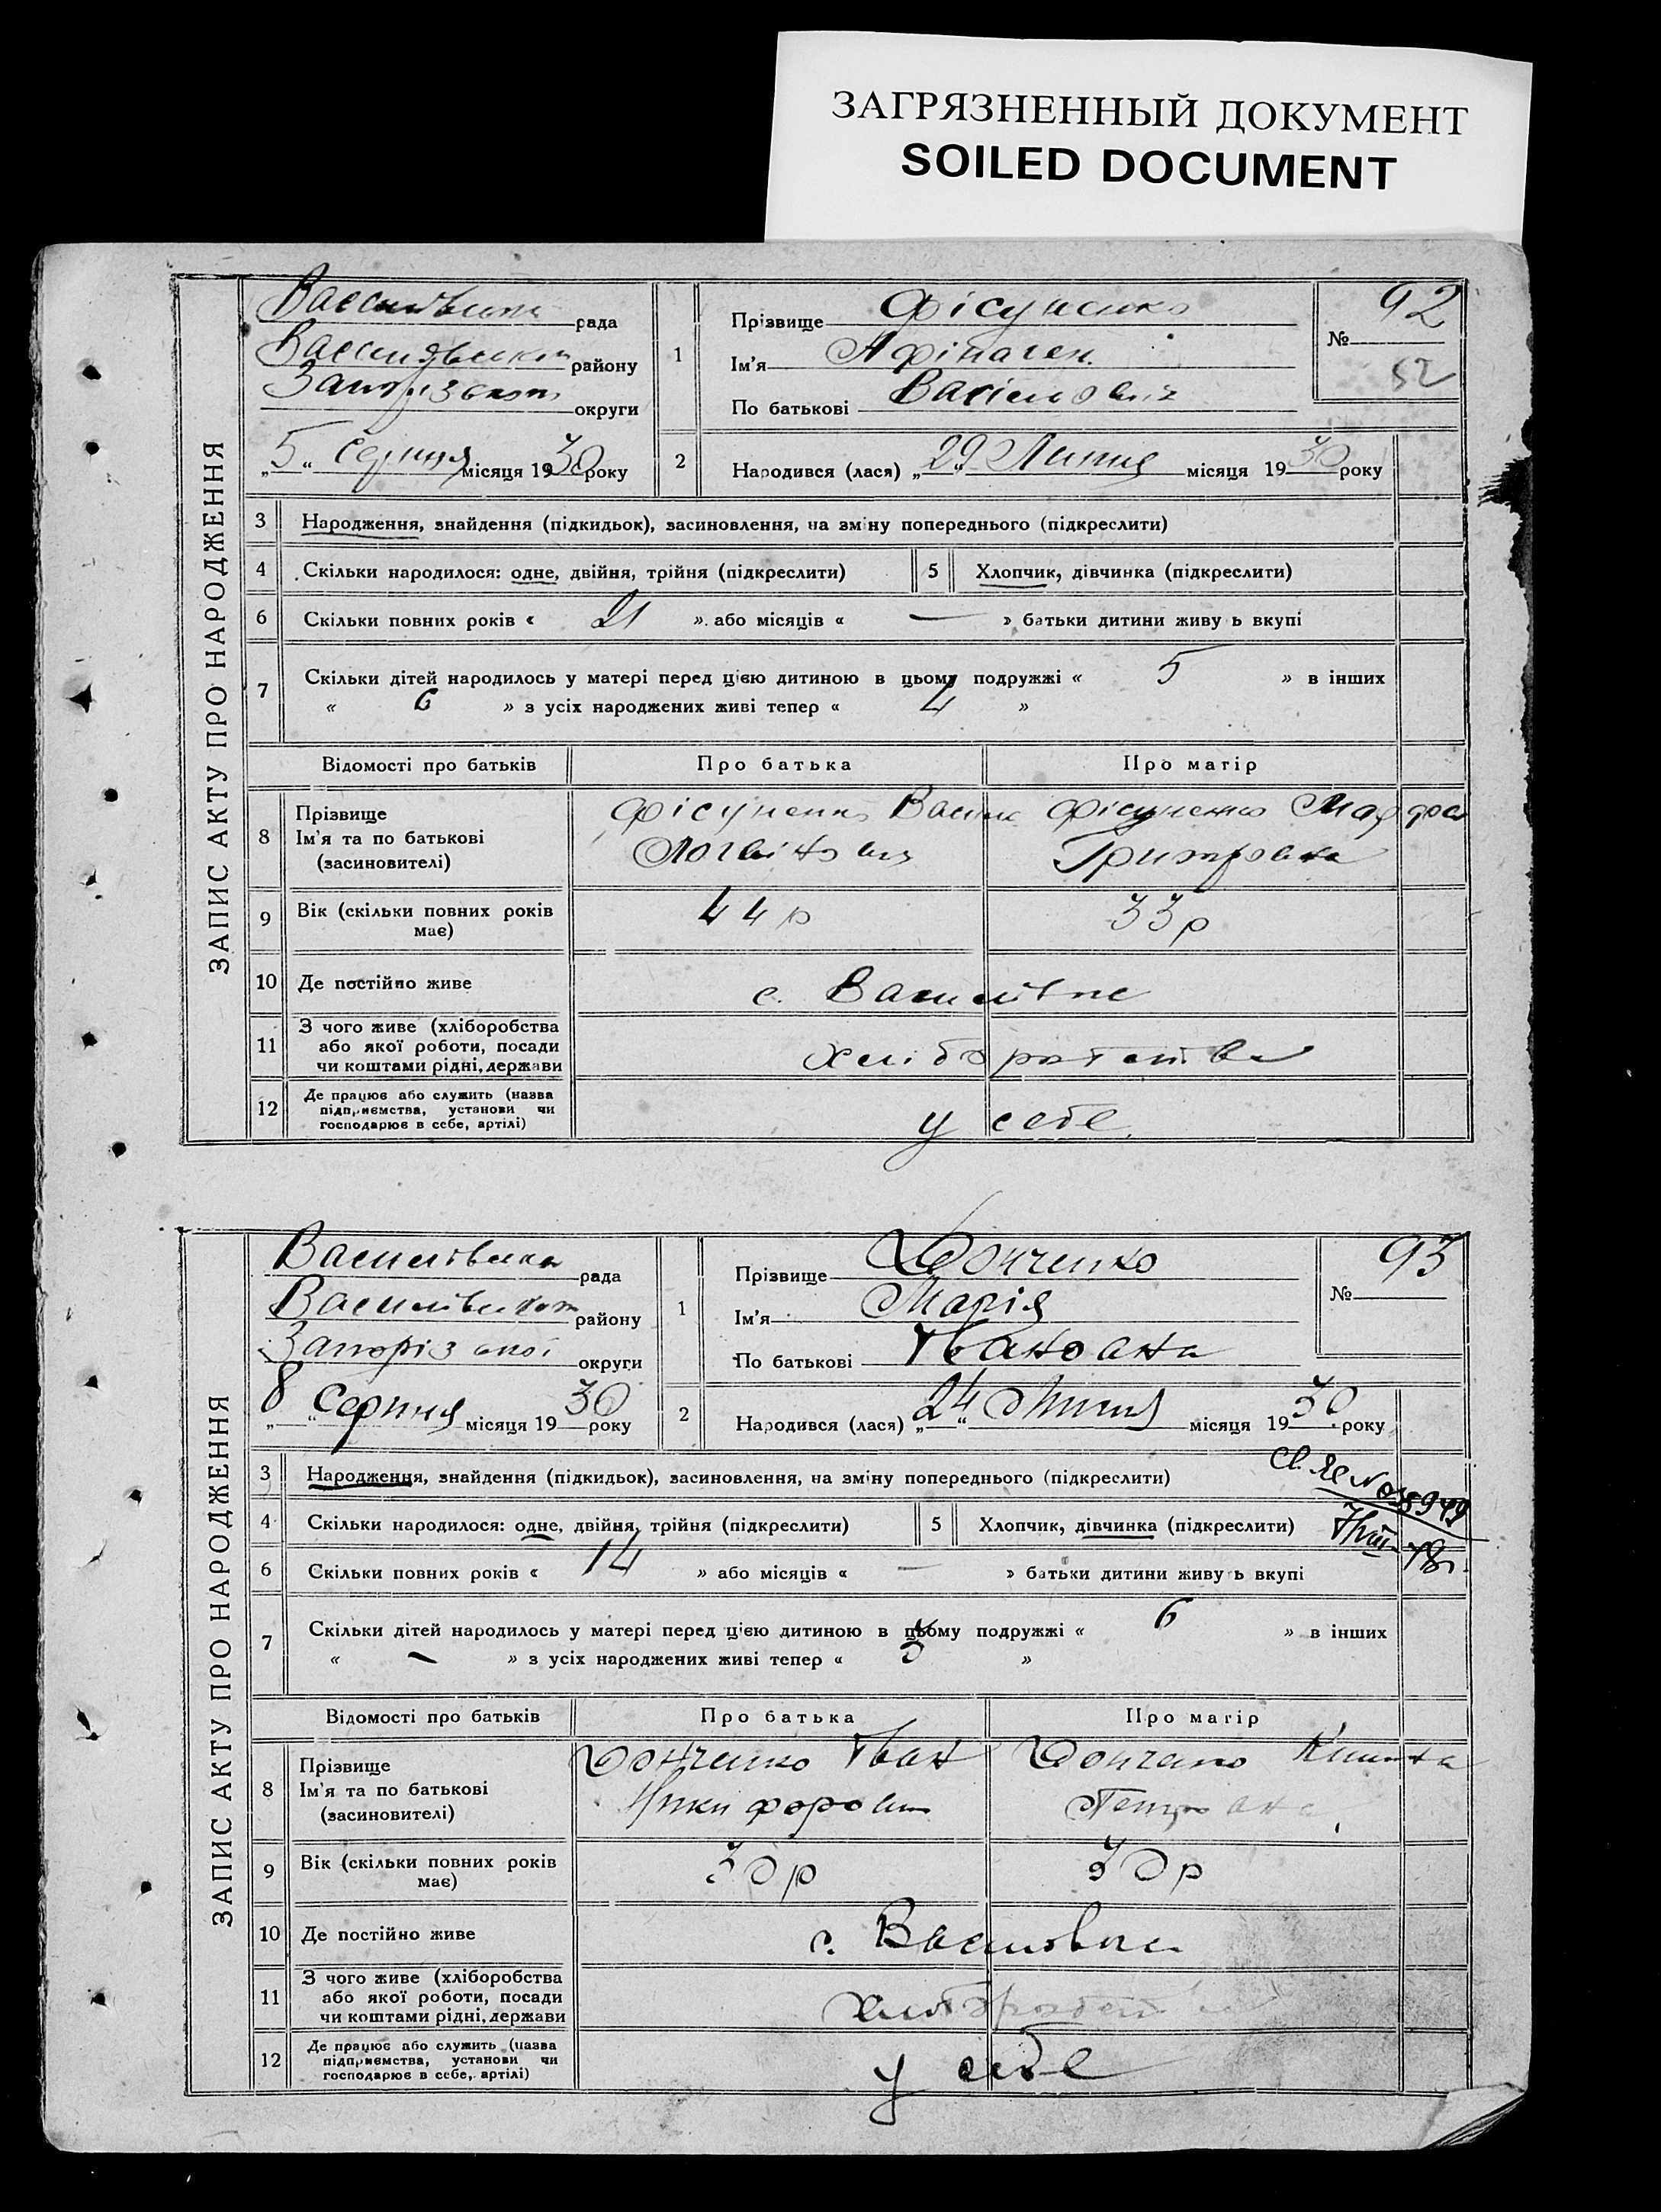 ЗАГРЯЗНЕННЫЙ ДОКУМЕНТ
SOILED DOCUMENT
ЗАПИС АКТУ ПРО НАРОДЖЕННЯ
рада
району
округи
„5“ Серпня місяця 1930 року
1
Прізвище Фісуненко
Ім'я
По батькові
№ 92
52
2
Народився (лася) „29“ Липня місяця 1930 року
3 Народження, знайдення (підкидьок), засиновлення, на зміну попереднього (підкреслити)
4 Скільки народилося: одне, двійня, трійня (підкреслити)
5 Хлопчик, дівчинка (підкреслити)
6 Скільки повних років « 21 » або місяців « — » батьки дитини живу ь вкупі
7 Скільки дітей народилось у матері перед цією дитиною в цьому подружжі « 5 » в інших
« 6 » з усіх народжених живі тепер « 4 »
Відомості про батьків Про батька Про матір
8 Прізвище
Ім'я та по батькові
(засиновителі)
Фісуненко
Фісуненко
9 Вік (скільки повних років
має)
44 р
33 р
10 Де постійно живе
с.
11 З чого живе (хліборобства
або якої роботи, посади
чи коштами рідні, держави
12 Де працює або служить (назва
підприємства, установи чи
господарює в себе, артілі)
у себе
ЗАПИС АКТУ ПРО НАРОДЖЕННЯ
рада
району
Запорізької округи
„8“ Серпня місяця 1930 року
1
Прізвище Донченко
Ім'я Марія
По батькові
№ 93
2
Народився (лася) „24“ Липня місяця 1930 року
3 Народження, знайдення (підкидьок), засиновлення, на зміну попереднього (підкреслити)
4 Скільки народилося: одне, двійня, трійня (підкреслити)
5 Хлопчик, дівчинка (підкреслити)
6 Скільки повних років « 14 » або місяців « — » батьки дитини живу ь вкупі
7 Скільки дітей народилось у матері перед цією дитиною в цьому подружжі « 6 » в інших
« — » з усіх народжених живі тепер « »
Відомості про батьків Про батька Про матір
8 Прізвище
Ім'я та по батькові
(засиновителі)
Донченко Іван
Донченко
9 Вік (скільки повних років
має)
30 р
30 р
10 Де постійно живе
с.
11 З чого живе (хліборобства
або якої роботи, посади
чи коштами рідні, держави
12 Де працює або служить (назва
підприємства, установи чи
господарює в себе, артілі)
у себе